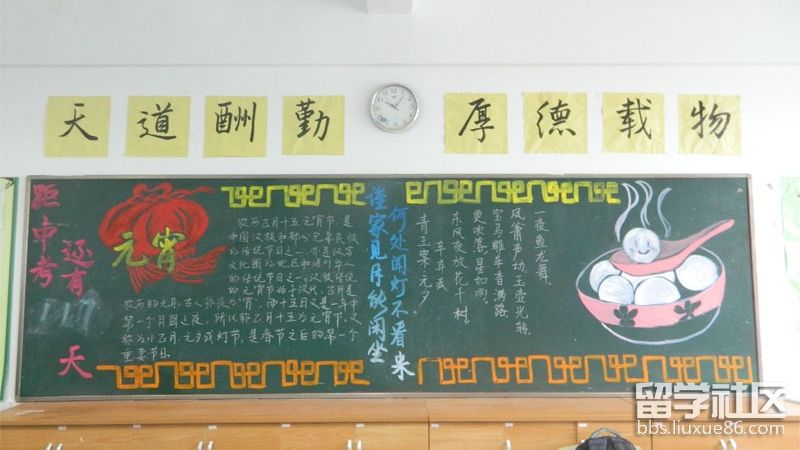 天道酬勤
厚德载物
距中考
还有
117
天
元宵
农历正月十五元宵节,是
中国汉族和部分兄弟民族
的传统节日之一,亦是汉字
文化圈的地区和海外华人
的传统节日之一。汉族传统
的元宵节始于汉代,正月是
农历的元月,古人称夜为"宵",而十五日又是一年中
第一个月圆之夜,所以称正月十五为元宵节。又
称为小正月、元夕或灯节,是春节之后的第一个
重要节日。
谁家见月能闲坐
何处闻灯不看来
青玉案·元夕
辛弃疾
东风夜放花千树
更吹落,星如雨。
宝马雕车香满路
凤箫声动,玉壶光转,
一夜鱼龙舞。
留学社区
bbs.liuxue86.com